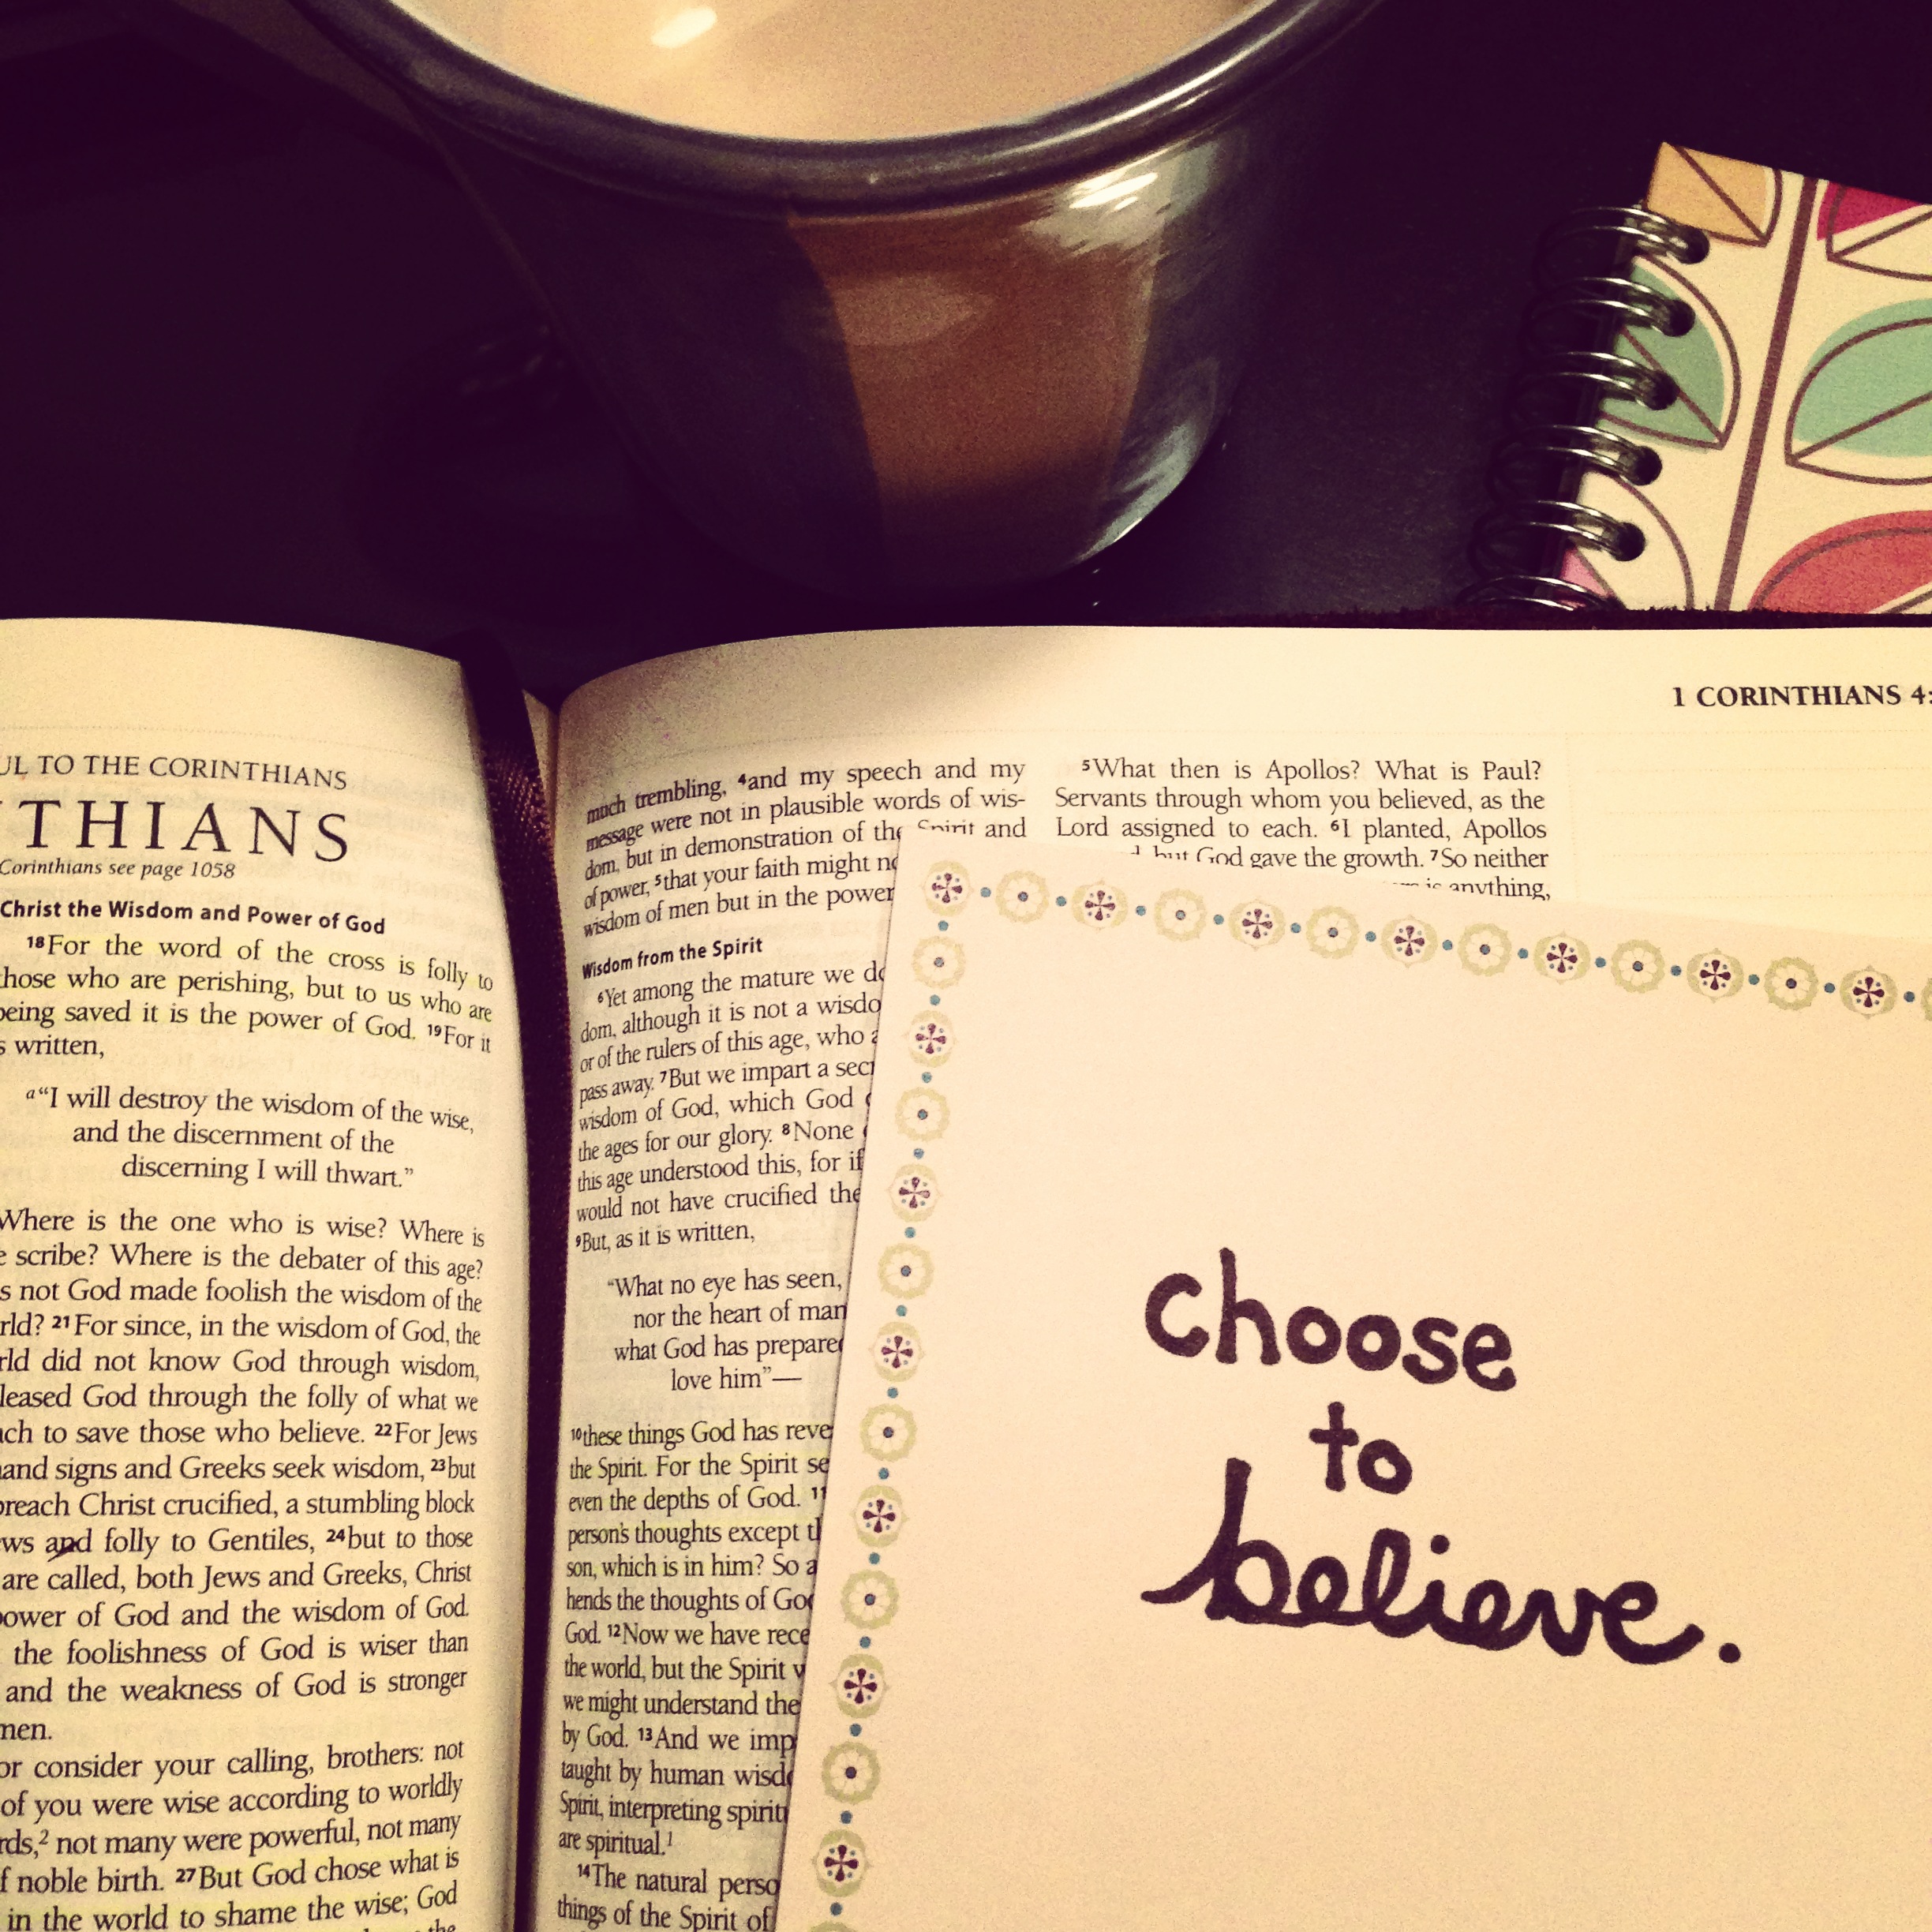 UL TO THE CORINTHIANS
THIANS
Corinthians see page 1058
Christ the Wisdom and Power of God
18For the word of the cross is folly to
those who are perishing, but to us who are
being saved it is the power of God. 19For it
s written,
a“I will destroy the wisdom of the wise,
and the discernment of the
discerning I will thwart.”
Where is the one who is wise? Where is
e scribe? Where is the debater of this age?
s not God made foolish the wisdom of the
rld? 21For since, in the wisdom of God, the
rld did not know God through wisdom,
leased God through the folly of what we
ach to save those who believe. 22For Jews
mand signs and Greeks seek wisdom, 23but
preach Christ crucified, a stumbling block
ws and folly to Gentiles, 24but to those
are called, both Jews and Greeks, Christ
power of God and the wisdom of God.
the foolishness of God is wiser than
and the weakness of God is stronger
men.
or consider your calling, brothers: not
of you were wise according to worldly
rds,2 not many were powerful, not many
f noble birth. 27But God chose what is
in the world to shame the wise; God
the
1 CORINTHIANS 4:
much trembling, 4and my speech and my
message were not in plausible words of wis-
dom, but in demonstration of the Spirit and
of power, 5that your faith might no
wisdom of men but in the power
Wisdom from the Spirit
6Yet among the mature we do
dom, although it is not a wisdo
or of the rulers of this age, who a
pass away. 7But we impart a secr
wisdom of God, which God
the ages for our glory. 8None
this age understood this, for if
would not have crucified the
9But, as it is written,
“What no eye has seen,
nor the heart of man
what God has prepared
love him”—
10these things God has reve
the Spirit. For the Spirit se
even the depths of God. 11
person's thoughts except th
son, which is in him? So a
hends the thoughts of God
God. 12Now we have rece
the world, but the Spirit w
we might understand the
by God. 13And we imp
taught by human wisdo
Spirit, interpreting spirit
are spiritual.1
14The natural perso
things of the Spirit of
5What then is Apollos? What is Paul?
Servants through whom you believed, as the
Lord assigned to each. 6I planted, Apollos
d, but God gave the growth. 7So neither
is anything,
choose
to
believe.